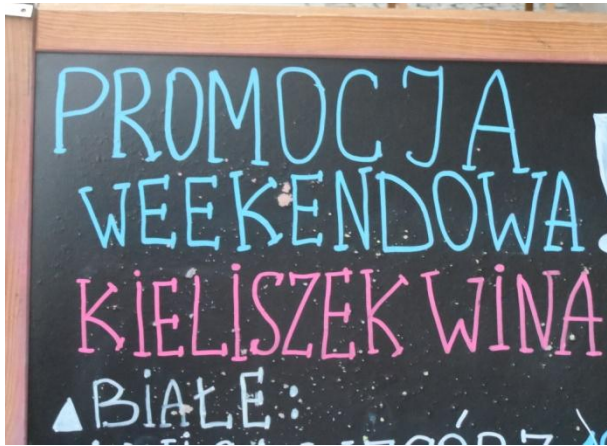 PROMOCJA
WEEKENDOWA!
KIELISZEK WINA
BIAŁE: